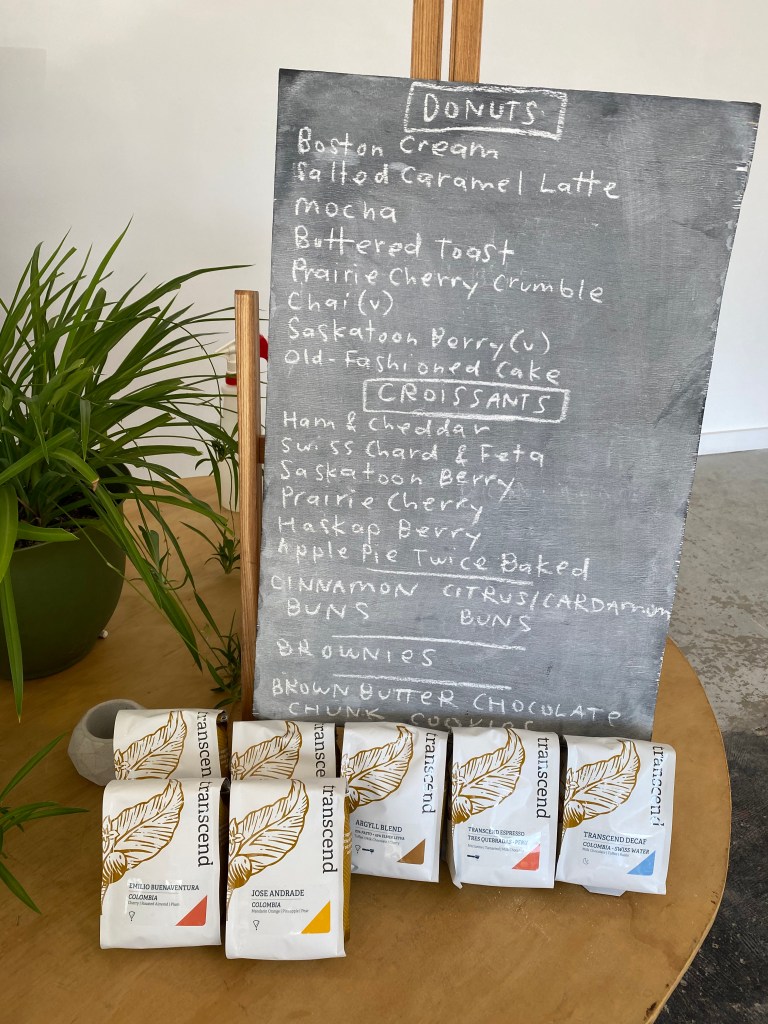 DONUTS
Boston Cream
Salted Caramel Latte
Mocha
Buttered Toast
Prairie Cherry Crumble
Chai (v)
Saskatoon Berry (v)
Old-Fashioned Cake
CROISSANTS
Ham & Cheddar
Swiss Chard & Feta
Saskatoon Berry
Prairie Cherry
Haskap Berry
Apple Pie Twice Baked
CINNAMON BUNS
CITRUS/CARDAMOM BUNS
BROWNIES
BROWN BUTTER CHOCOLATE
CHUNK COOKIES
transcend
transcend
transcend
ARGYLL BLEND
transcend
TRANSCEND ESPRESSO
transcend
TRANSCEND DECAF
COLOMBIA - SWISS WATER
transcend
EMILIO BUENAVENTURA
COLOMBIA
transcend
JOSE ANDRADE
COLOMBIA
Mandarin Orange | Pineapple | Plum